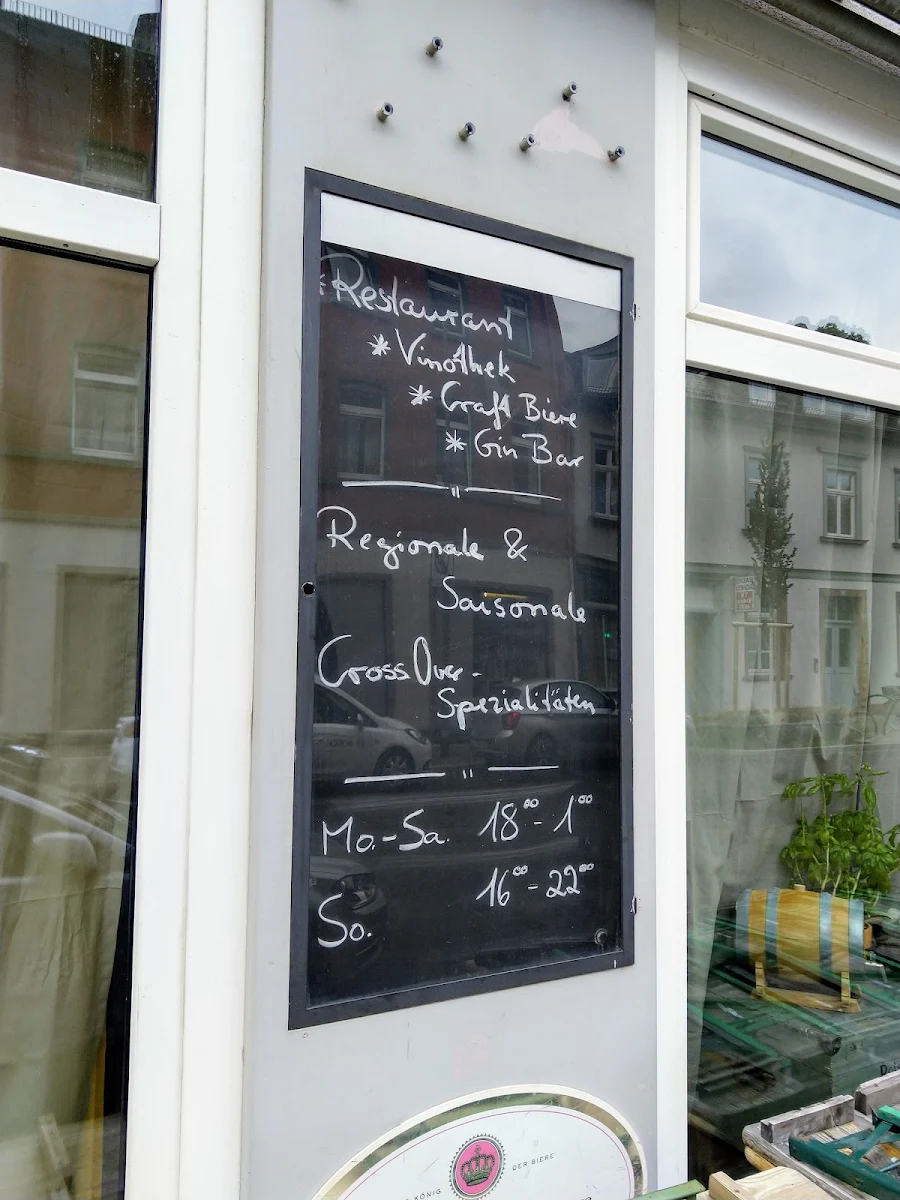 * Restaurant
* Vinothek
* Craft Biere
* Gin Bar
Regionale &
Saisonale
CrossOver-
Spezialitäten
Mo.-Sa. 18⁰⁰ - 1⁰⁰
16⁰⁰ - 22⁰⁰
So.
KÖNIG DER BIERE